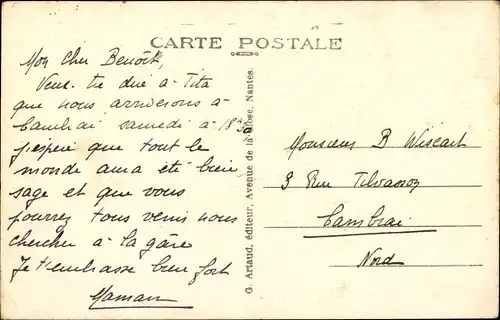 CARTE POSTALE
Mon cher Benoît,
Veux-tu dire à Tita
que nous arriverons à
Cambrai samedi à 18h30
j'espère que tout le
monde aura été bien
sage et que vous
pourrez tous venir nous
chercher à la gare
Je t'embrasse bien fort
Maman
G. Artaud, éditeur, Avenue de la Close, Nantes.
Monsieur B Wiscart
3 Rue
Cambrai
Nord